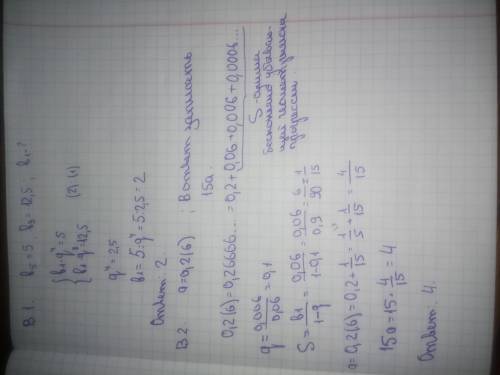 В.1. b₅ = 5 b₉ = 12,5 ; b₁-?
{b₁·q⁴=5
b₁·q⁸=12,5 (2):(1)
q⁴=2,5
b₁=5:q⁴=5:2,5=2
Ответ: 2
В.2 a=0,2(6) ; В ответ записать
15a.
0,2(6)=0,26666...=0,2+0,06+0,006+0,0006...
S-сумма
бесконечно убываю-
щей геометр
прогрессии
q=0,006/0,06=0,1
S=b₁/1-q=0,06/1-0,1=0,06/0,9=6/90=1/15
a=0,2(6)=0,2+1/15=1/5+1/15=4/15
15a=15·4/15=4
Ответ: 4.